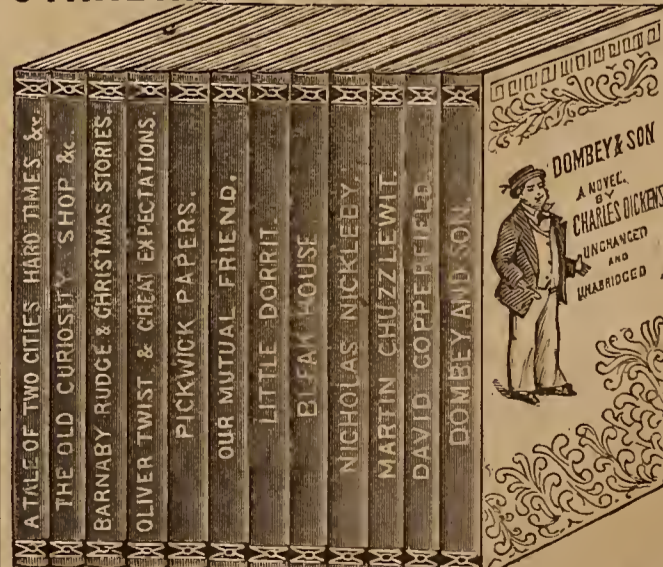 A TALE OF TWO CITIES HARD TIMES &c.
THE OLD CURIOSITY SHOP &c.
BARNABY RUDGE & CHRISTMAS STORIES.
OLIVER TWIST & GREAT EXPECTATIONS.
PICKWICK PAPERS.
OUR MUTUAL FRIEND.
LITTLE DORRIT.
BLEAK HOUSE
NICHOLAS NICKLEBY.
MARTIN CHUZZLEWIT.
DAVID COPPERFIELD.
DOMBEY AND SON.
DOMBEY & SON
A NOVEL.
BY
CHARLES DICKENS
UNCHANGED
AND
UNABRIDGED